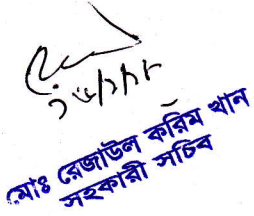 মোঃ রেজাউল করিম খান
সহকারী সচিব